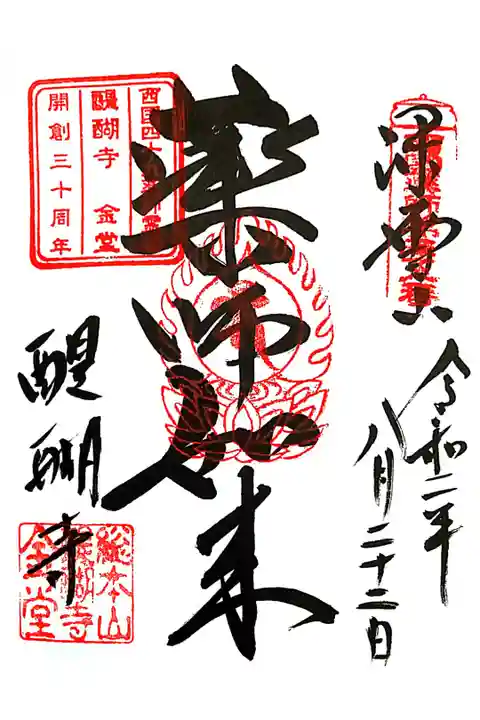 深雪山
令和二年
八月二十二日
薬師如来
西国四十
醍醐寺 金堂
開創三十周年
醍醐寺
総本山
醍醐寺
金堂